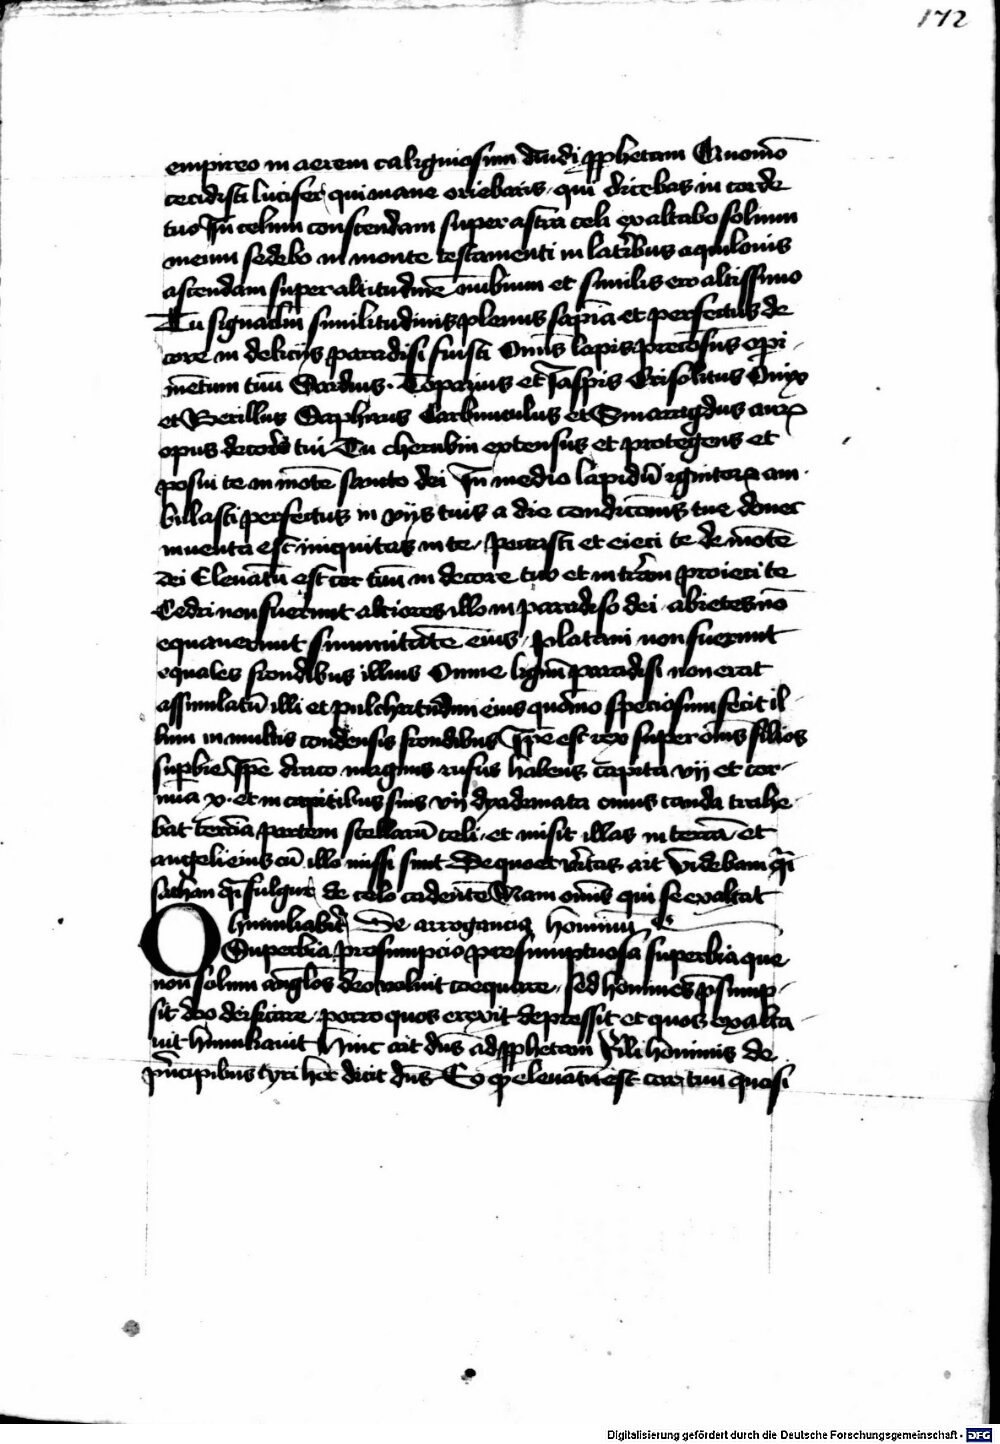 172
empireo in aerem caliginosum dicendi ꝓphetam Quomō
cecidisti lucifer qui mane oriebaris qui dicebas in corde
tuo In celum conscendam super astra celi exaltabo solium
meum sedebo in monte testamenti in lateribus aquilonis
ascendam super altitudinē nubium et similis ero altissimo
Tu signaclm similitudinis plenus sapīa et perfectus de
core in delicijs paradisi fuisti Omīs lapis preciosus opi
mētum tuū Sardius · Topazius et Jaspis Crisolitus Onix
et Berillus Saphirus Carbunculus et Smaragdus auꝝ
opus decoris tui Tu cherubin extensus et protegens et
posui te in mōte sancto dei In medio lapidū ignitoꝝ am
bulasti perfectus in vijs tuis a die condicōnis tue donec
inuenta est iniquitas in te peccasti et eieci te de mōte
dei Eleuatū est cor tuū in decore tuo et in trām proieci te
Cedri non fuerunt alciores illo in paradiso dei abietes nō
equauerunt summitatē eius platani non fuerunt
equales frondibus illius Omne lignū paradisi non erat
assimulatū illi et pulchritudini eius quōmo speciosum fecit il
lum in multis condensis frondibus Ipē est rex super omēs filios
supbie Ipē draco magnus rufus habens capita vij et cor
nua x · et in capitibus suis vij dyademata cuius cauda trahe
bat terciā partem stellarū celi et misit illas in terrā et
angeli eius cū illo missi sunt De quo et vītas ait Videbam
sathan fulgur de celo cadentē Nam omīs qui se exaltat
humiliabit De arrogancia hominū
O Superbia presumpcio presumptuosa superbia que
non solum angelos deo voluit coequare sed homines p̄sump
sit deo deificare porro quos erexit depressit et quos exalta
uit humiliauit Hinc ait dūs ad ꝓphetam Fili hominis de
prīncipibus tyri hec dicit dūs Eo ꝙ eleuatū est cor tuū quasi
Digitalisierung gefördert durch die Deutsche Forschungsgemeinschaft - DFG